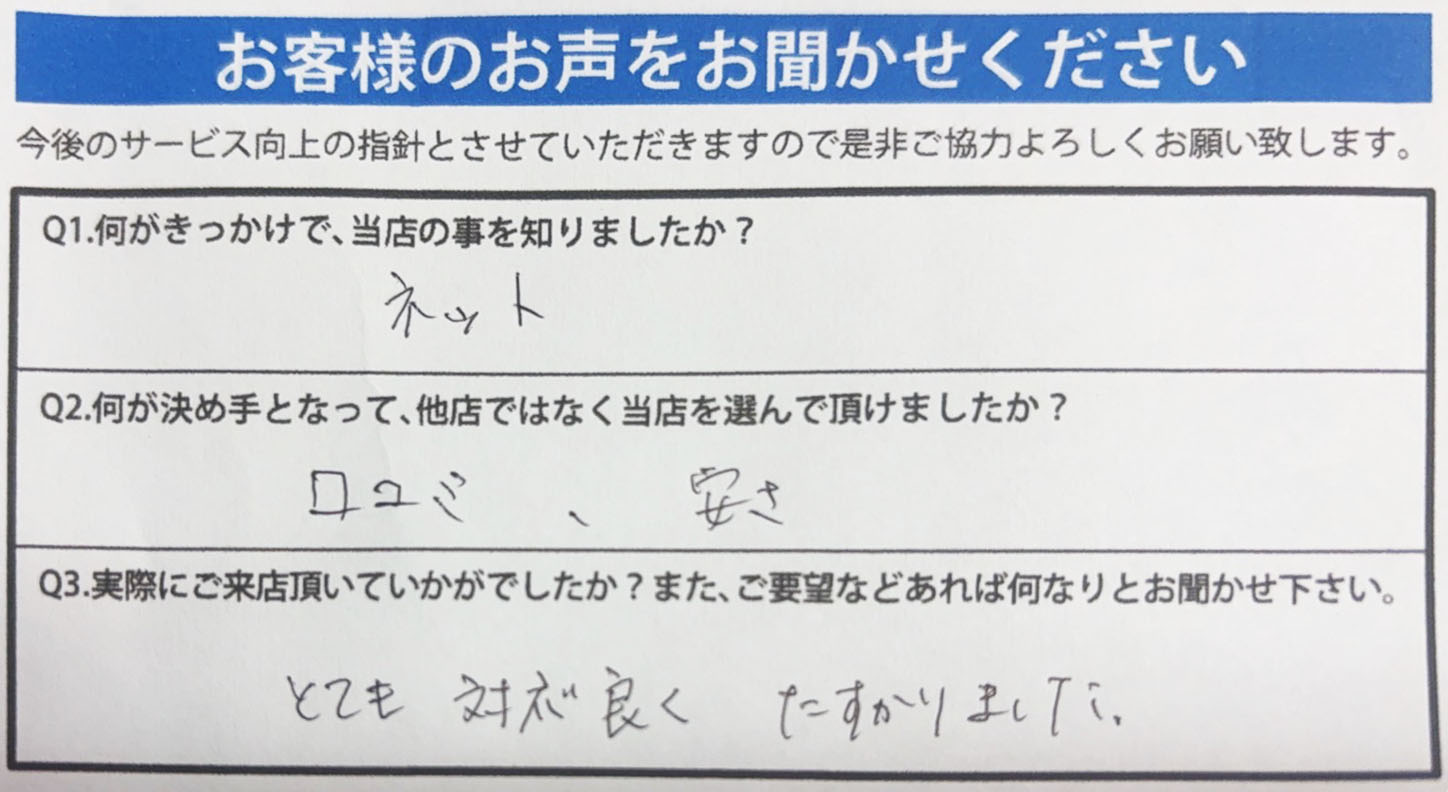 お客様のお声をお聞かせください
今後のサービス向上の指針とさせていただきますので是非ご協力よろしくお願い致します。
Q1.何がきっかけで、当店の事を知りましたか？
ネット
Q2.何が決め手となって、他店ではなく当店を選んで頂けましたか？
口コミ 、 安さ
Q3.実際にご来店頂いていかがでしたか？また、ご要望などあれば何なりとお聞かせ下さい。
とても 対応良く たすかりました。